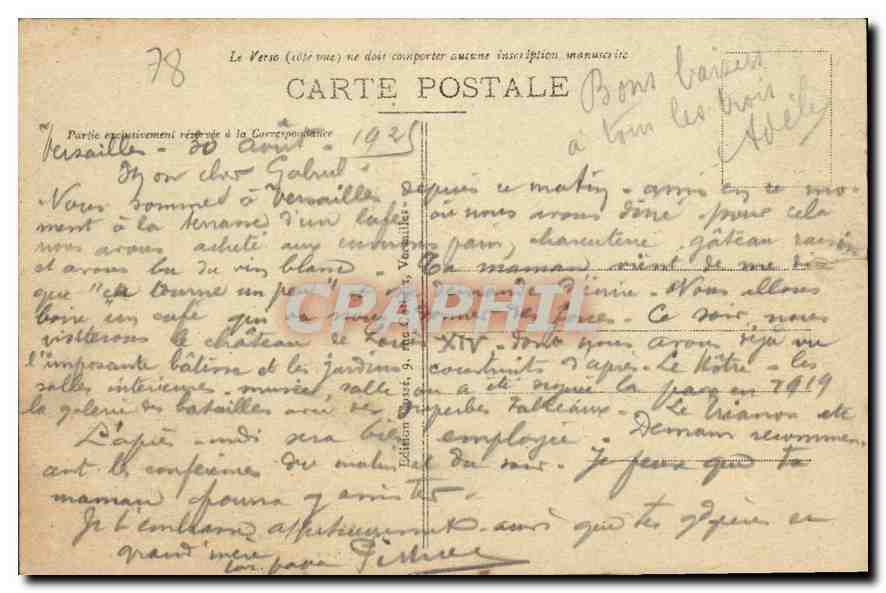 78
Le Verso (côté vue) ne doit comporter aucune inscription manuscrite
CARTE POSTALE
Bons baisers
à tous les trois
Adèle
Partie exclusivement réservée à la Correspondance
Versailles - 30 août - 1925
Mon cher Gabriel
Nous sommes à Versailles depuis ce matin - assis en ce mo-
ment à la terrasse d'un café où nous avons dîné - pour cela
nous avons acheté aux environs pain, charcuterie, gâteau raisin
et avons bu du vin blanc - Ta maman vient de me dire
que "ça tourne un peu" et me demande d'écrire - Nous allons
boire un café qui va nous donner des forces - Ce soir nous
visiterons le château de Louis XIV - dont nous avons déjà vu
l'imposante bâtisse et les jardins construits d'après Le Nôtre - les
salles intérieures - musée, salle où a été signée la paix en 1919
la galerie des batailles avec des superbes tableaux - Le Trianon etc
L'après-midi sera bien employée - Demain recommen-
ceront les conférences du matin et du soir - Je pense que ta
maman pourra y assister -
Je t'embrasse affectueusement ainsi que tes
grand'mère
ton papa
Edition 9, rue Versailles
CPRAPHIL